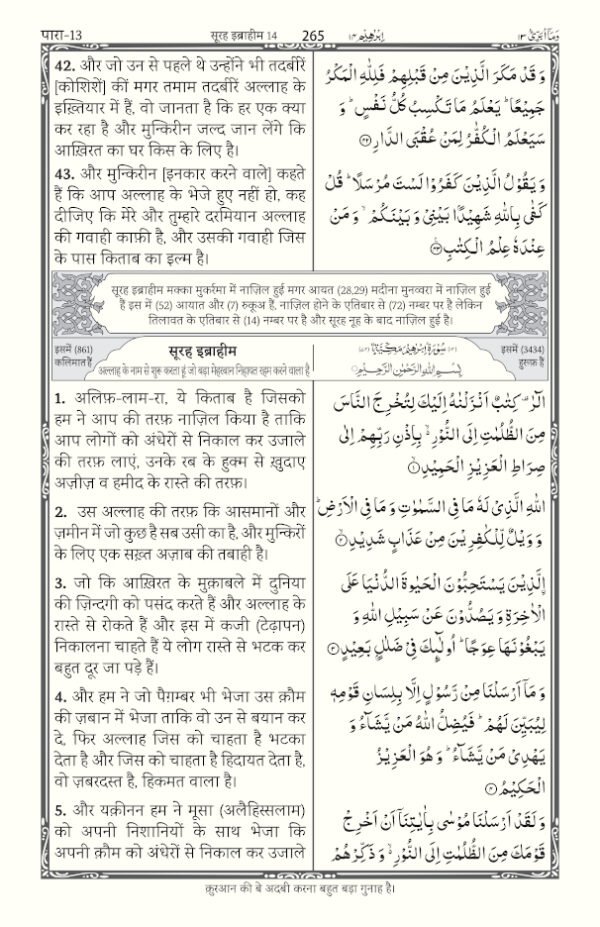 पारा-13
सूरह इब्राहीम 14
265
اِبْرٰهِيْم ١٤
وَمَآ اُبَرِّئُ ١٣
42. और जो उन से पहले थे उन्होंने भी तदबीरें
[कोशिशें] कीं मगर तमाम तदबीरें अल्लाह के
इख़्तियार में हैं, वो जानता है कि हर एक क्या
कर रहा है और मुन्किरीन जल्द जान लेंगे कि
आख़िरत का घर किस के लिए है।
43. और मुन्किरीन [इनकार करने वाले] कहते
हैं कि आप अल्लाह के भेजे हुए नहीं हो, कह
दीजिए कि मेरे और तुम्हारे दरमियान अल्लाह
की गवाही काफ़ी है, और उसकी गवाही जिस
के पास किताब का इल्म है।
وَقَدْ مَكَرَ الَّذِيْنَ مِنْ قَبْلِهِمْ فَلِلّٰهِ الْمَكْرُ
جَمِيْعًا ؕ يَعْلَمُ مَا تَكْسِبُ كُلُّ نَفْسٍ ؕ وَ
سَيَعْلَمُ الْكُفّٰرُ لِمَنْ عُقْبَى الدَّارِ ﴿۴۲﴾
وَيَقُوْلُ الَّذِيْنَ كَفَرُوْا لَسْتَ مُرْسَلًا ؕ قُلْ
كَفٰى بِاللّٰهِ شَهِيْدًۢا بَيْنِيْ وَبَيْنَكُمْ ۙ وَمَنْ
عِنْدَهٗ عِلْمُ الْكِتٰبِ ﴿۴۳﴾
सूरह इब्राहीम मक्का मुकर्रमा में नाज़िल हुई मगर आयत (28,29) मदीना मुनव्वरा में नाज़िल हुई
है इस में (52) आयात और (7) रुकूअ हैं, नाज़िल होने के एतिबार से (72) नम्बर पर है लेकिन
तिलावत के एतिबार से (14) नम्बर पर है और सूरह नूह के बाद नाज़िल हुई है।
इसमें (861)
कलिमात हैं
सूरह इब्राहीम
अल्लाह के नाम से शुरू करता हूं जो बड़ा मेहरबान निहायत रहम करने वाला है
سُوْرَةُ اِبْرٰهِيْمَ مَكِّيَّةٌ
بِسْمِ اللّٰهِ الرَّحْمٰنِ الرَّحِيْمِ
इसमें (3434)
हुरूफ़ हैं
1. अलिफ़-लाम-रा, ये किताब है जिसको
हम ने आप की तरफ़ नाज़िल किया है ताकि
आप लोगों को अंधेरों से निकाल कर उजाले
की तरफ़ लाएं, उनके रब के हुक्म से ख़ुदाए
अज़ीज़ व हमीद के रास्ते की तरफ़।
2. उस अल्लाह की तरफ़ कि आसमानों और
ज़मीन में जो कुछ है सब उसी का है, और मुन्किरों
के लिए एक सख़्त अज़ाब की तबाही है।
3. जो कि आख़िरत के मुक़ाबले में दुनिया
की ज़िन्दगी को पसंद करते हैं और अल्लाह के
रास्ते से रोकते हैं और इस में कजी (टेढ़ापन)
निकालना चाहते हैं ये लोग रास्ते से भटक कर
बहुत दूर जा पड़े हैं।
4. और हम ने जो पैग़म्बर भी भेजा उस क़ौम
की ज़बान में भेजा ताकि वो उन से बयान कर
दे, फिर अल्लाह जिस को चाहता है भटका
देता है और जिस को चाहता है हिदायत देता है,
वो ज़बरदस्त है, हिकमत वाला है।
5. और यक़ीनन हम ने मूसा (अलैहिस्सलाम)
को अपनी निशानियों के साथ भेजा कि
अपनी क़ौम को अंधेरों से निकाल कर उजाले
الٓرٰ ۟ كِتٰبٌ اَنْزَلْنٰهُ اِلَيْكَ لِتُخْرِجَ النَّاسَ
مِنَ الظُّلُمٰتِ اِلَى النُّوْرِ ۙ بِاِذْنِ رَبِّهِمْ اِلٰى
صِرَاطِ الْعَزِيْزِ الْحَمِيْدِ ﴿۱﴾
اللّٰهِ الَّذِيْ لَهٗ مَا فِي السَّمٰوٰتِ وَمَا فِي الْاَرْضِ ؕ
وَوَيْلٌ لِّلْكٰفِرِيْنَ مِنْ عَذَابٍ شَدِيْدِ ﴿۲﴾
اۨلَّذِيْنَ يَسْتَحِبُّوْنَ الْحَيٰوةَ الدُّنْيَا عَلَى
الْاٰخِرَةِ وَيَصُدُّوْنَ عَنْ سَبِيْلِ اللّٰهِ وَ
يَبْغُوْنَهَا عِوَجًا ؕ اُولٰٓئِكَ فِيْ ضَلٰلٍۢ بَعِيْدٍ ﴿۳﴾
وَمَآ اَرْسَلْنَا مِنْ رَّسُوْلٍ اِلَّا بِلِسَانِ قَوْمِهٖ
لِيُبَيِّنَ لَهُمْ ؕ فَيُضِلُّ اللّٰهُ مَنْ يَّشَآءُ وَ
يَهْدِيْ مَنْ يَّشَآءُ ؕ وَهُوَ الْعَزِيْزُ
الْحَكِيْمُ ﴿۴﴾
وَلَقَدْ اَرْسَلْنَا مُوْسٰى بِاٰيٰتِنَآ اَنْ اَخْرِجْ
قَوْمَكَ مِنَ الظُّلُمٰتِ اِلَى النُّوْرِ ۙ وَذَكِّرْهُمْ
क़ुरआन की बे अदबी करना बहुत बड़ा गुनाह है।